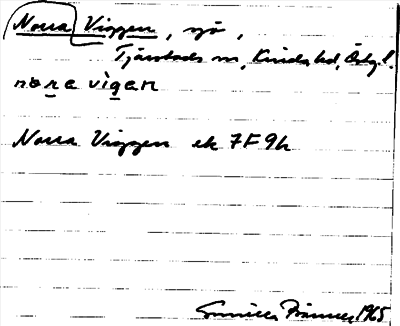 Norra Viggen, sjö,
Tjärstads sn, Kinda hd, Östg!.
nora vigen
Norra Viggen ek 7F9h
Gunilla 1965